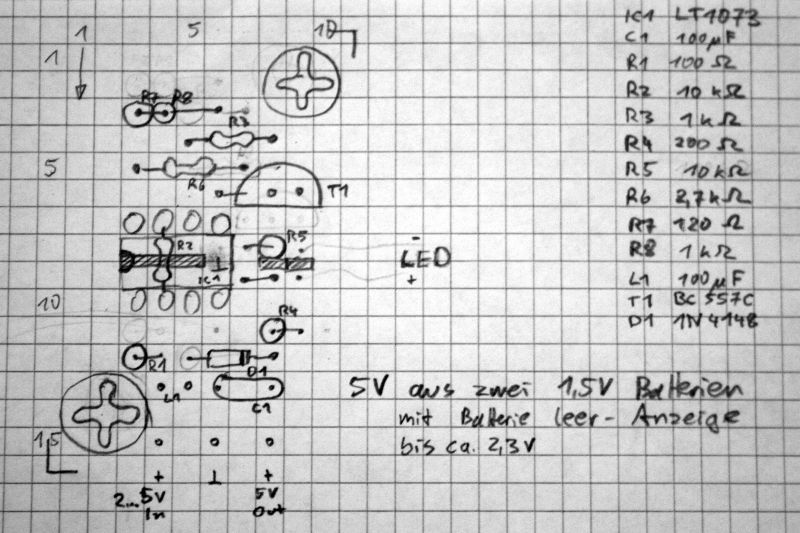 1 5 10
1
R7 R8
R3
5
R6
T1
R2 R5
IC1
LED
-
+
10
R4
R1
D1
L1
C1
15
+ ⊥ +
2...5V 5V
In Out
IC1 LT1073
C1 100µF
R1 100 Ω
R2 10 kΩ
R3 1 kΩ
R4 200 Ω
R5 10 kΩ
R6 2,7 kΩ
R7 120 Ω
R8 1 kΩ
L1 100 µF
T1 BC 557C
D1 1N 4148
5V aus zwei 1,5V Batterien
mit Batterie leer-Anzeige
bis ca. 2,3V